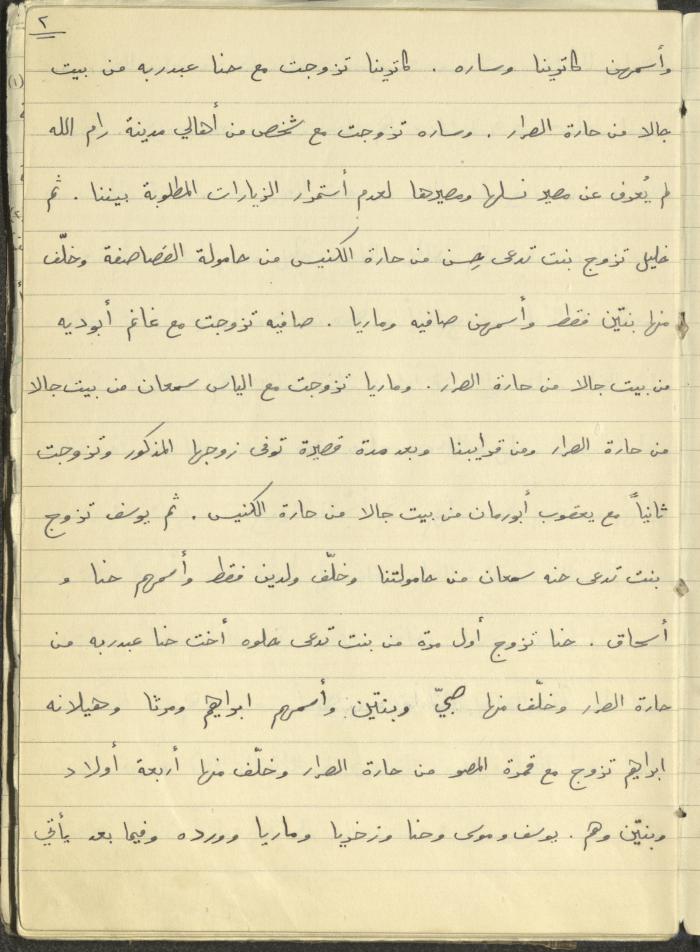 ٢
وأسمهن كاترينا وساره . كاترينا تزوجت مع حنا عبدربه من بيت
جالا من حارة الصرار . وساره تزوجت مع شخص من أهالي مدينة رام الله
لم يُعرف عن مصير نسلها ومصيرها لعدم أستمرار الزيارات المطلوبة بيننا . ثم
خليل تزوج بنت تدعى حِسن من حارة الكنيس من حامولة القصاصفة وخلّف
منها بنتين فقط وأسمهن صافيه وماريا . صافيه تزوجت مع غانم أبوديه
من بيت جالا من حارة الصرار . وماريا تزوجت مع الياس سمعان من بيت جالا
من حارة الصرار ومن قرايبنا وبعد مدة قصيرة توفى زوجها المذكور وتزوجت
ثانياً مع يعقوب أبورمان من بيت جالا من حارة الكنيس . ثم يوسف تزوج
بنت تدعى حنه سمعان من حامولتنا وخلّف ولدين فقط وأسمهم حنا و
أسحاق . حنا تزوج أول مرة من بنت تدعى حلوه أخت حنا عبدربه من
حارة الصرار وخلّف منها صبيّ وبنتين وأسمهم ابراهيم ومرثا وهيلانه
ابراهيم تزوج مع قمرة المصو من حارة الصرار وخلّف منها أربعة أولاد
وبنتين وهم . يوسف وموسى وحنا وزخريا وماريا وورده وفيما بعد يأتي